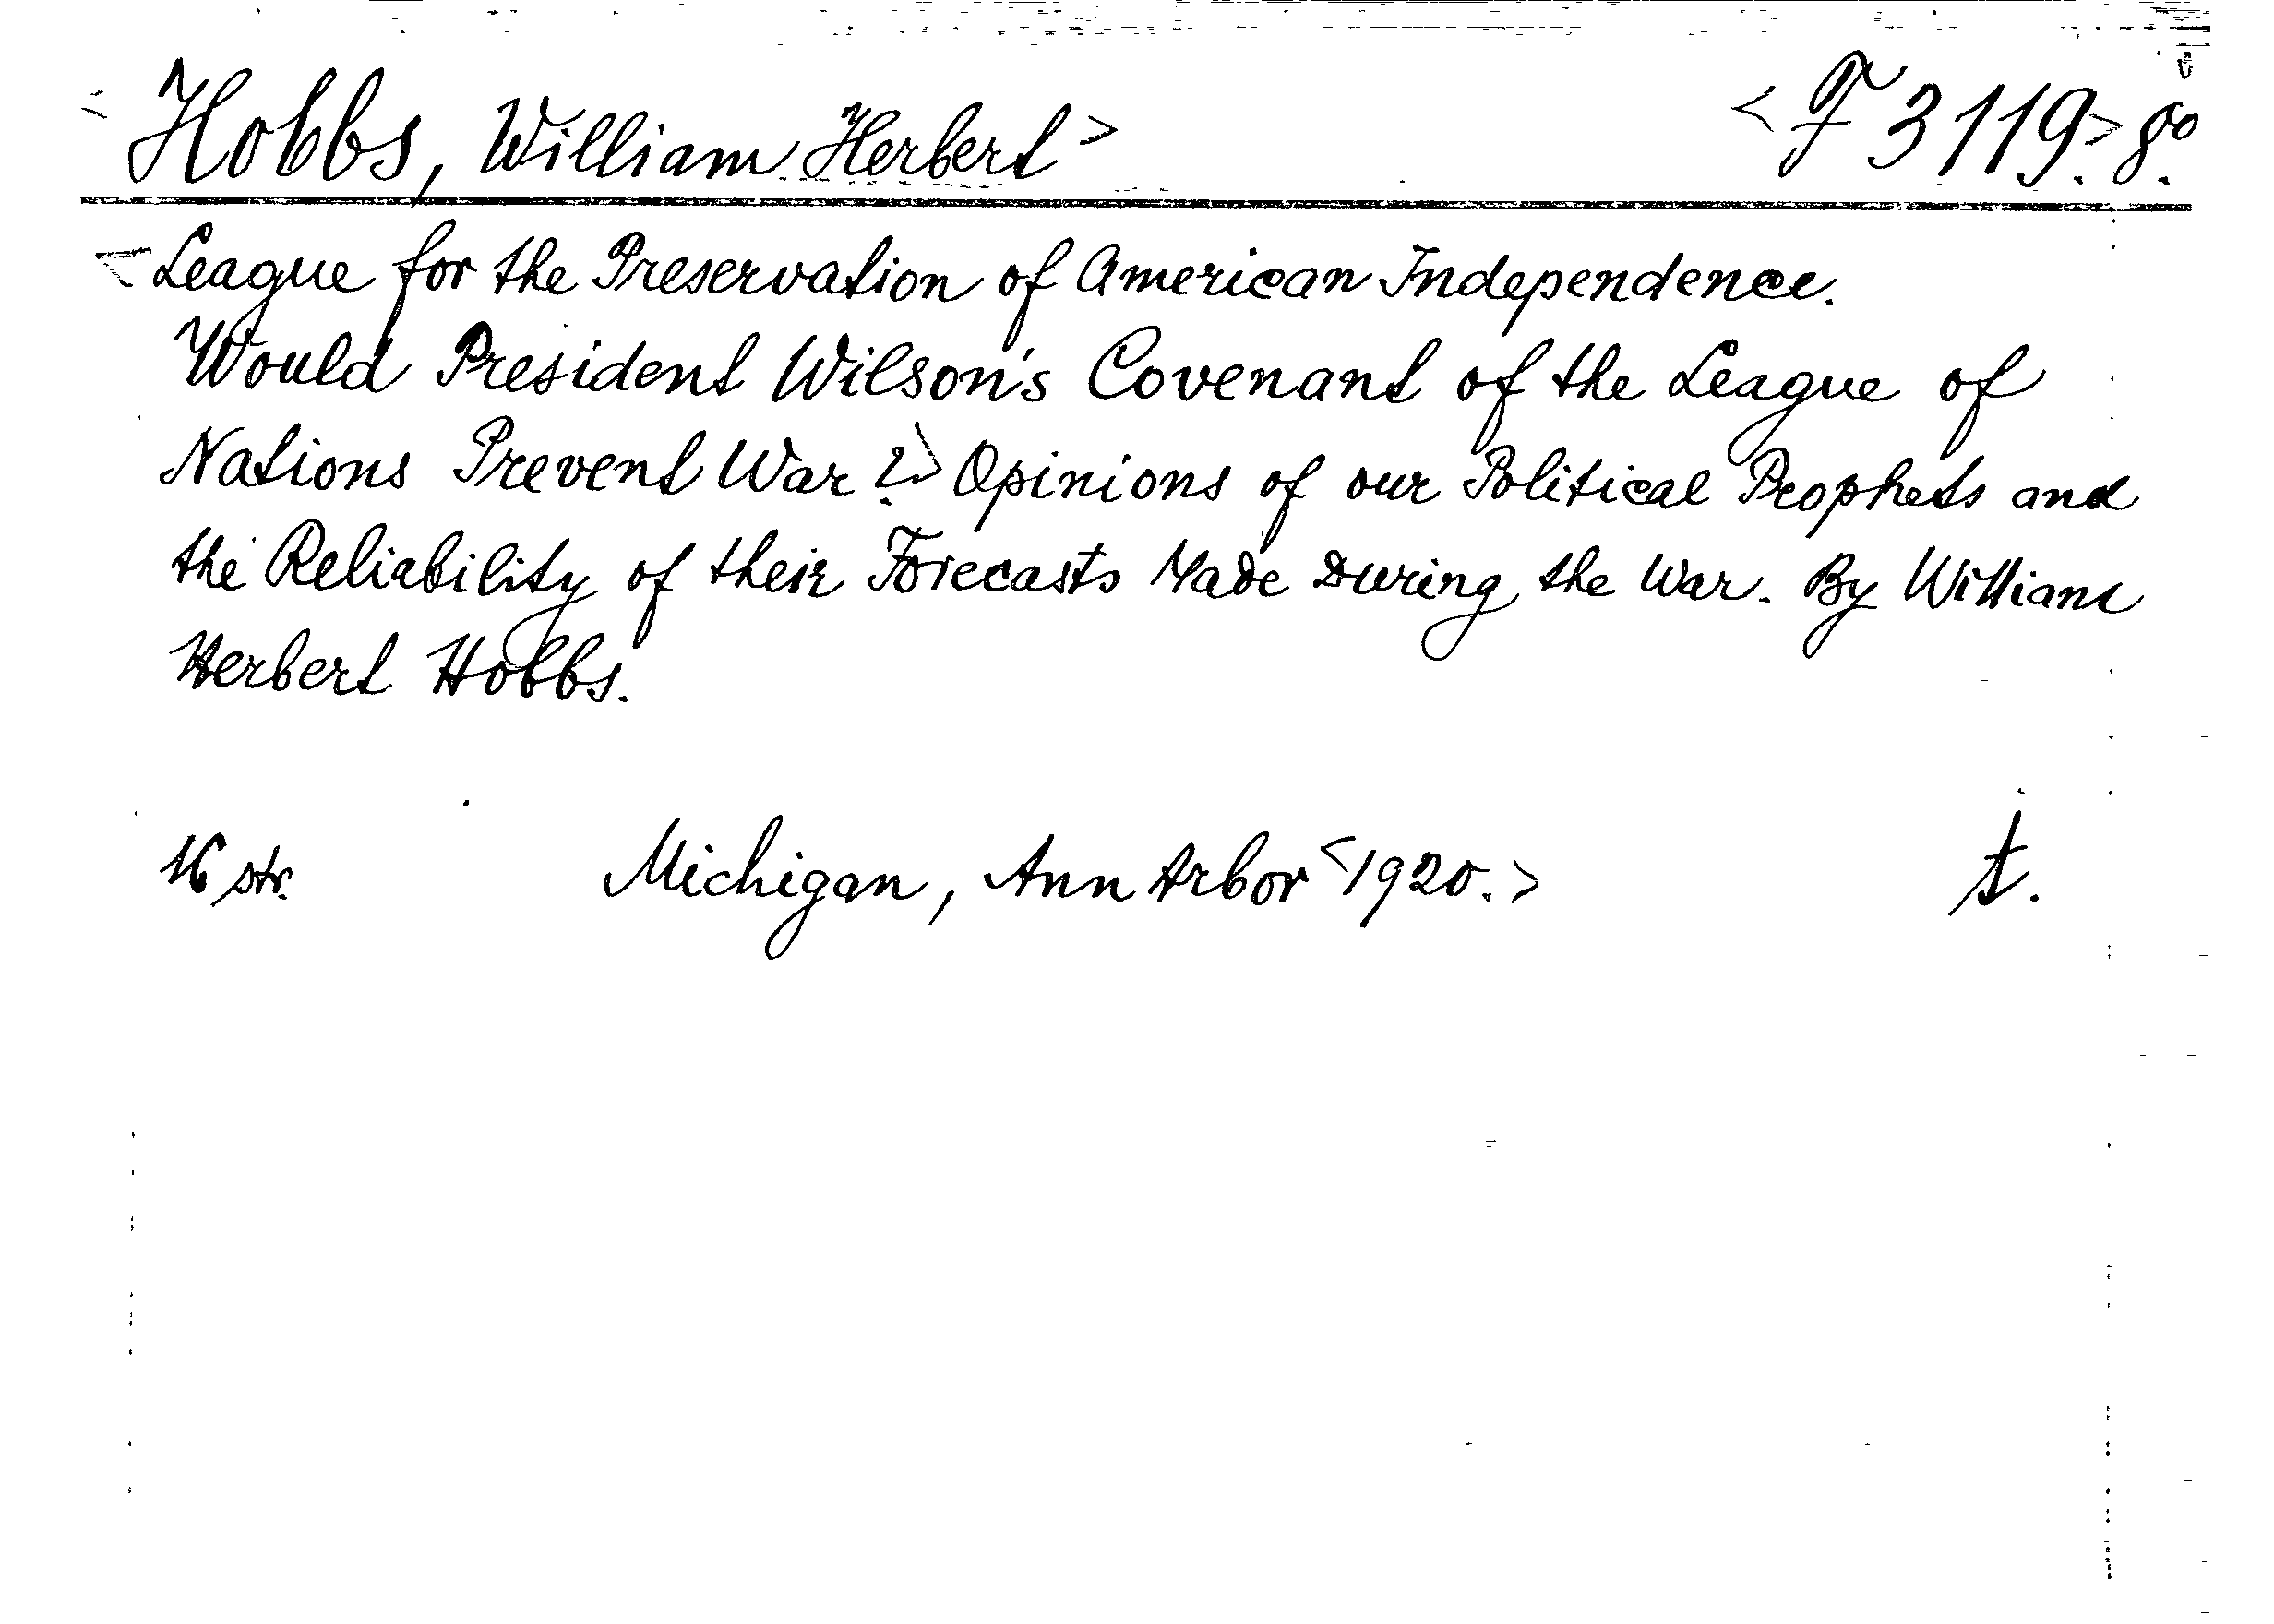 <Hobbs, William Herbert> <F 3119.> 8º.
<League for the Preservation of American Independence.
Would President Wilson's Covenant of the League of
Nations Prevent War?> Opinions of our Political Prophets and
the Reliability of their Forecasts Made During the War. By William
Herbert Hobbs.
16 str. Michigan, Ann Arbor <1920.> t.